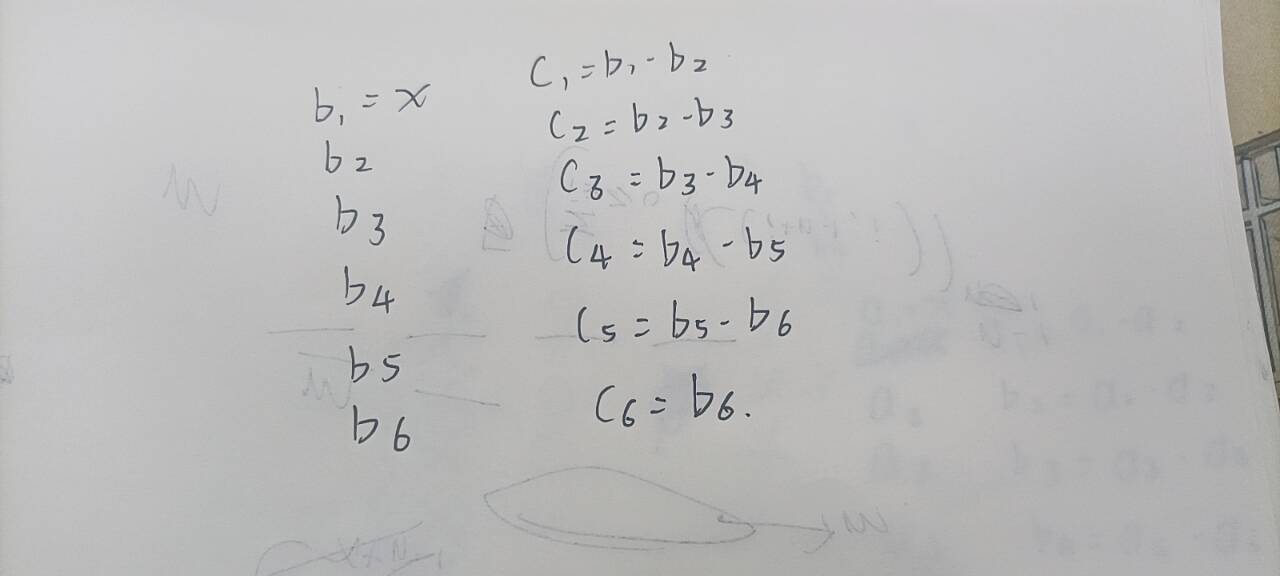 b₁ = x
b₂
b₃
b₄
b₅
b₆
C₁ = b₁ - b₂
C₂ = b₂ - b₃
C₃ = b₃ - b₄
C₄ = b₄ - b₅
C₅ = b₅ - b₆
C₆ = b₆.